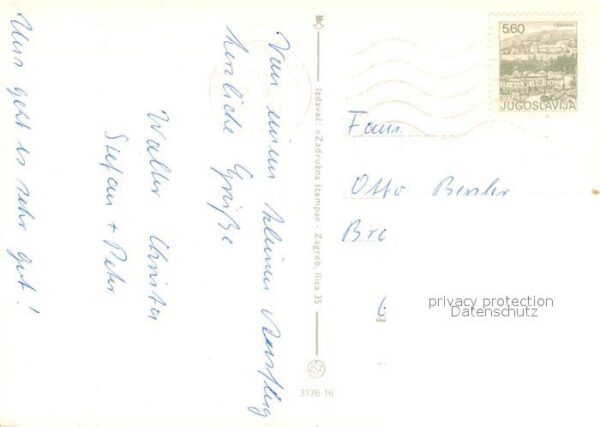 Von einem kleinen Ausflug
herzliche Grüße
Walter Christa
Stefan + Peter
Uns geht es sehr gut!
Izdavač »Zadružna štampa« - Zagreb, Ilica 35
3176 16
5.60
JUGOSLAVIJA
Fam.
Otto
Bre
privacy protection
Datenschutz